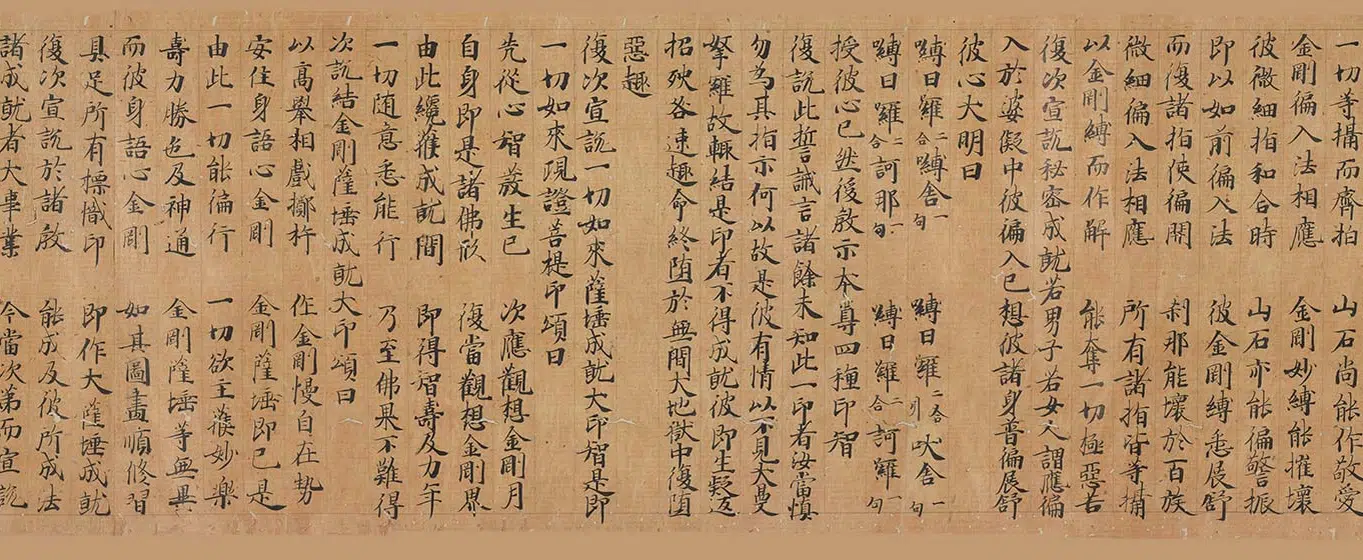 一切等攝而齊拍　山石尚能作敬愛
金剛徧入法相應　金剛妙縛能摧壞
彼微細指和合時　山石亦能徧警振
即以如前徧入法　彼金剛縛悉展舒
而復諸指使徧開　刹那能壞於百族
微細徧入法相應　所有諸指皆等攝
以金剛縛而作解　能奪一切極惡苦
復次宣說秘密成就若男子若女人謂應徧
入於婆儗中彼徧入已想彼諸身普徧展舒
彼心大明曰
嚩日羅二合嚩舍一句　嚩日羅二合引吠舍一句
嚩日羅二合訶那一句　嚩日羅二合訶羅一句
授彼心已然後啟示本尊四種印智
復說此誓誡言諸餘未知此一印者汝當慎
勿為其指示何以故是彼有情以不見大曼
拏羅故輒結是印者不得成就彼即生疑返
招殃咎速趣命終墮於無間大地獄中復墮
惡趣
復次宣說一切如來薩埵成就大印智是即
一切如來現證菩提印頌曰
先從心智發生已　次應觀想金剛月
自身即是諸佛形　復當觀想金剛界
由此纔獲成就間　即得智壽及力年
一切隨意悉能行　乃至佛果不難得
次說結金剛薩埵成就大印頌曰
以高舉相戲擲杵　作金剛慢自在勢
安住身語心金剛　金剛薩埵即己是
由此一切能徧行　一切欲主獲妙樂
壽力勝色及神通　金剛薩埵等無異
而彼身語心金剛　如其圖畫順修習
具足所有標幟印　即作大薩埵成就
復次宣說於諸啟　能成及彼所成法
諸成就者大事業　今當次第而宣說